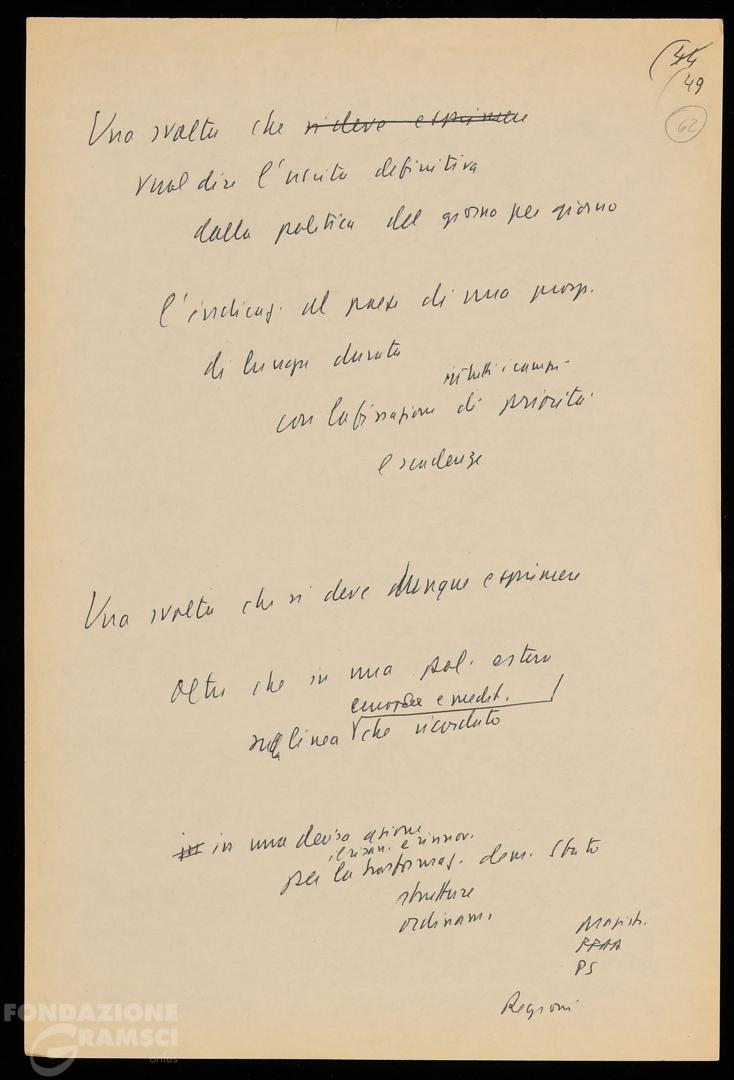 (44
49
62
Una svolta che si deve esprimere
vuol dire l'uscita definitiva
dalla politica del giorno per giorno
l'indicaz. al paese di una prosp.
di lunga durata
in tutti i campi
con la fissazione di priorità
e scadenze
Una svolta che si deve dunque esprimere
oltre che in una pol. estera
europea e medit.
sulla linea che ricordato
in una decisa azione
il risan. e rinnov.
per la trasformaz. dem. Stato
strutture
ordinam.
Magistr.
FFAA
PS
Regioni
FONDAZIONE
GRAMSCI
onlus